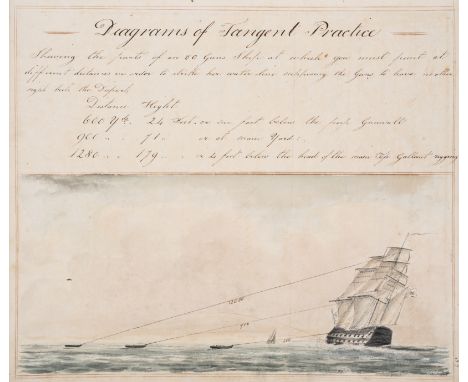 Diagrams of Tangent Practice
Shewing the parts of an 80 Guns Ship at which you must point at
different distances in order to strike her water line supposing the Guns to have no other
sight but the Dispart
Distance Height
600 Yds. 24 Feet or one foot below the poop Gunwall
900 " 71 " or at main Yard
1280 " 179 " or 4 foot below the head of the main Top Gallant rigging
1280
900